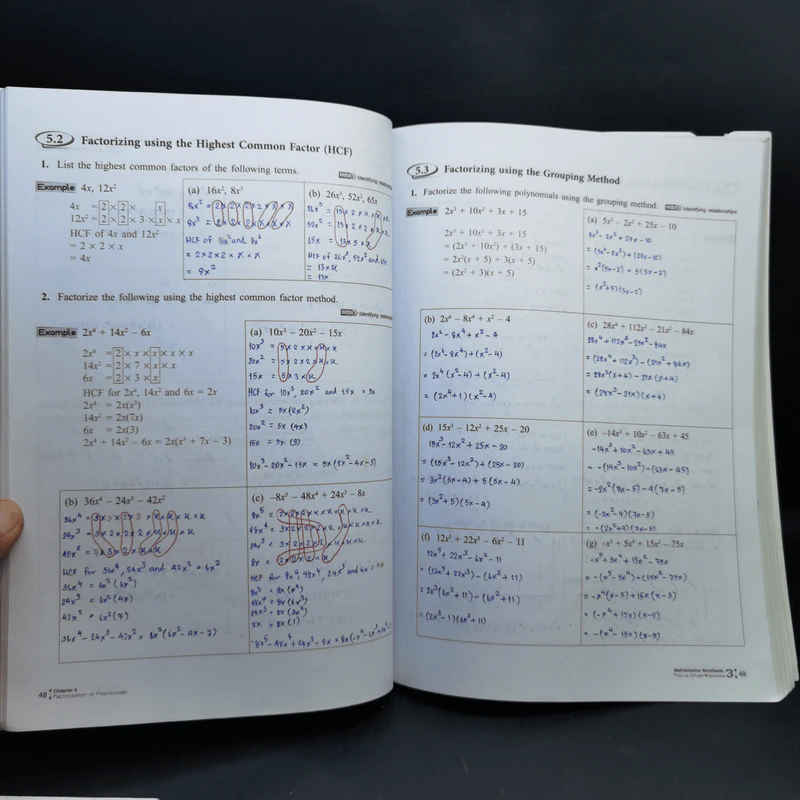 5.2 Factorizing using the Highest Common Factor (HCF)
1. List the highest common factors of the following terms.
Identifying
Example 4x, 12x²
4x = 2 × 2 × x
12x² = 2 × 2 × 3 × x × x
HCF of 4x and 12x²
= 2 × 2 × x
= 4x
(a) 16x², 8x³
HCF of 16x² and 8x³
= 2 x 2 x 2 x x x x
= 8x²
(b) 26x³, 52x², 65x
= 13 x x
= 13x
2. Factorize the following using the highest common factor method.
Identifying
Example 2x⁴ + 14x² − 6x
2x⁴ = 2 × x × x × x × x
14x² = 2 × 7 × x × x
6x = 2 × 3 × x
HCF for 2x⁴, 14x² and 6x = 2x
2x⁴ = 2x(x³)
14x² = 2x(7x)
6x = 2x(3)
2x⁴ + 14x² − 6x = 2x(x³ + 7x − 3)
(a) 10x³ − 20x² − 15x
HCF for 10x³, 20x² and 15x = 5x
10x³ = 5x (2x²)
20x² = 5x (4x)
15x = 5x (3)
10x³ - 20x² - 15x = 5x (2x² - 4x - 3)
(b) 36x⁴ − 24x³ − 42x²
HCF for 36x⁴, 24x³ and 42x² = 6x²
36x⁴ = 6x² (6x²)
24x³ = 6x² (4x)
42x² = 6x² (7)
36x⁴ - 24x³ - 42x² = 6x² (6x² - 4x - 7)
(c) −8x⁵ − 48x⁴ + 24x³ − 8x
8x⁵ = 8x (x⁴)
48x⁴ = 8x (6x³)
24x³ = 8x (3x²)
8x = 8x (1)
48 Chapter 5
Factorization of Polynomials
5.3 Factorizing using the Grouping Method
1. Factorize the following polynomials using the grouping method.
Identifying relationships
Example 2x³ + 10x² + 3x + 15
2x³ + 10x² + 3x + 15
= (2x³ + 10x²) + (3x + 15)
= 2x²(x + 5) + 3(x + 5)
= (2x² + 3)(x + 5)
(a) 5x³ − 2x² + 25x − 10
5x³ - 2x² + 25x - 10
= (5x³ - 2x²) + (25x - 10)
= x² (5x - 2) + 5 (5x - 2)
= (x² + 5) (5x - 2)
(b) 2x⁶ − 8x⁴ + x² − 4
2x⁶ - 8x⁴ + x² - 4
= (2x⁶ - 8x⁴) + (x² - 4)
= 2x⁴ (x² - 4) + (x² - 4)
= (2x⁴ + 1) (x² - 4)
(c) 28x⁴ + 112x³ − 21x² − 84x
28x⁴ + 112x³ - 21x² - 84x
= (28x⁴ + 112x³) - (21x² + 84x)
= 28x³ (x + 4) - 21x (x + 4)
= (28x³ - 21x) (x + 4)
(d) 15x³ − 12x² + 25x − 20
15x³ - 12x² + 25x - 20
= (15x³ - 12x²) + (25x - 20)
= 3x² (5x - 4) + 5 (5x - 4)
= (3x² + 5) (5x - 4)
(e) −14x³ + 10x² − 63x + 45
-14x³ + 10x² - 63x + 45
= -(14x³ - 10x²) - (63x - 45)
= -2x² (7x - 5) - 9 (7x - 5)
= (-2x² - 9) (7x - 5)
= -(2x² + 9) (7x - 5)
(f) 12x⁵ + 22x³ − 6x² − 11
12x⁵ + 22x³ - 6x² - 11
= (12x⁵ + 22x³) - (6x² + 11)
= 2x³ (6x² + 11) - (6x² + 11)
= (2x³ - 1) (6x² + 11)
(g) −x⁵ + 5x⁴ + 15x² − 75x
-x⁵ + 5x⁴ + 15x² - 75x
= -(x⁵ - 5x⁴) + (15x² - 75x)
= -x⁴ (x - 5) + 15x (x - 5)
= (-x⁴ + 15x) (x - 5)
= -(x⁴ - 15x) (x - 5)
Mathematics Workbook 3 49